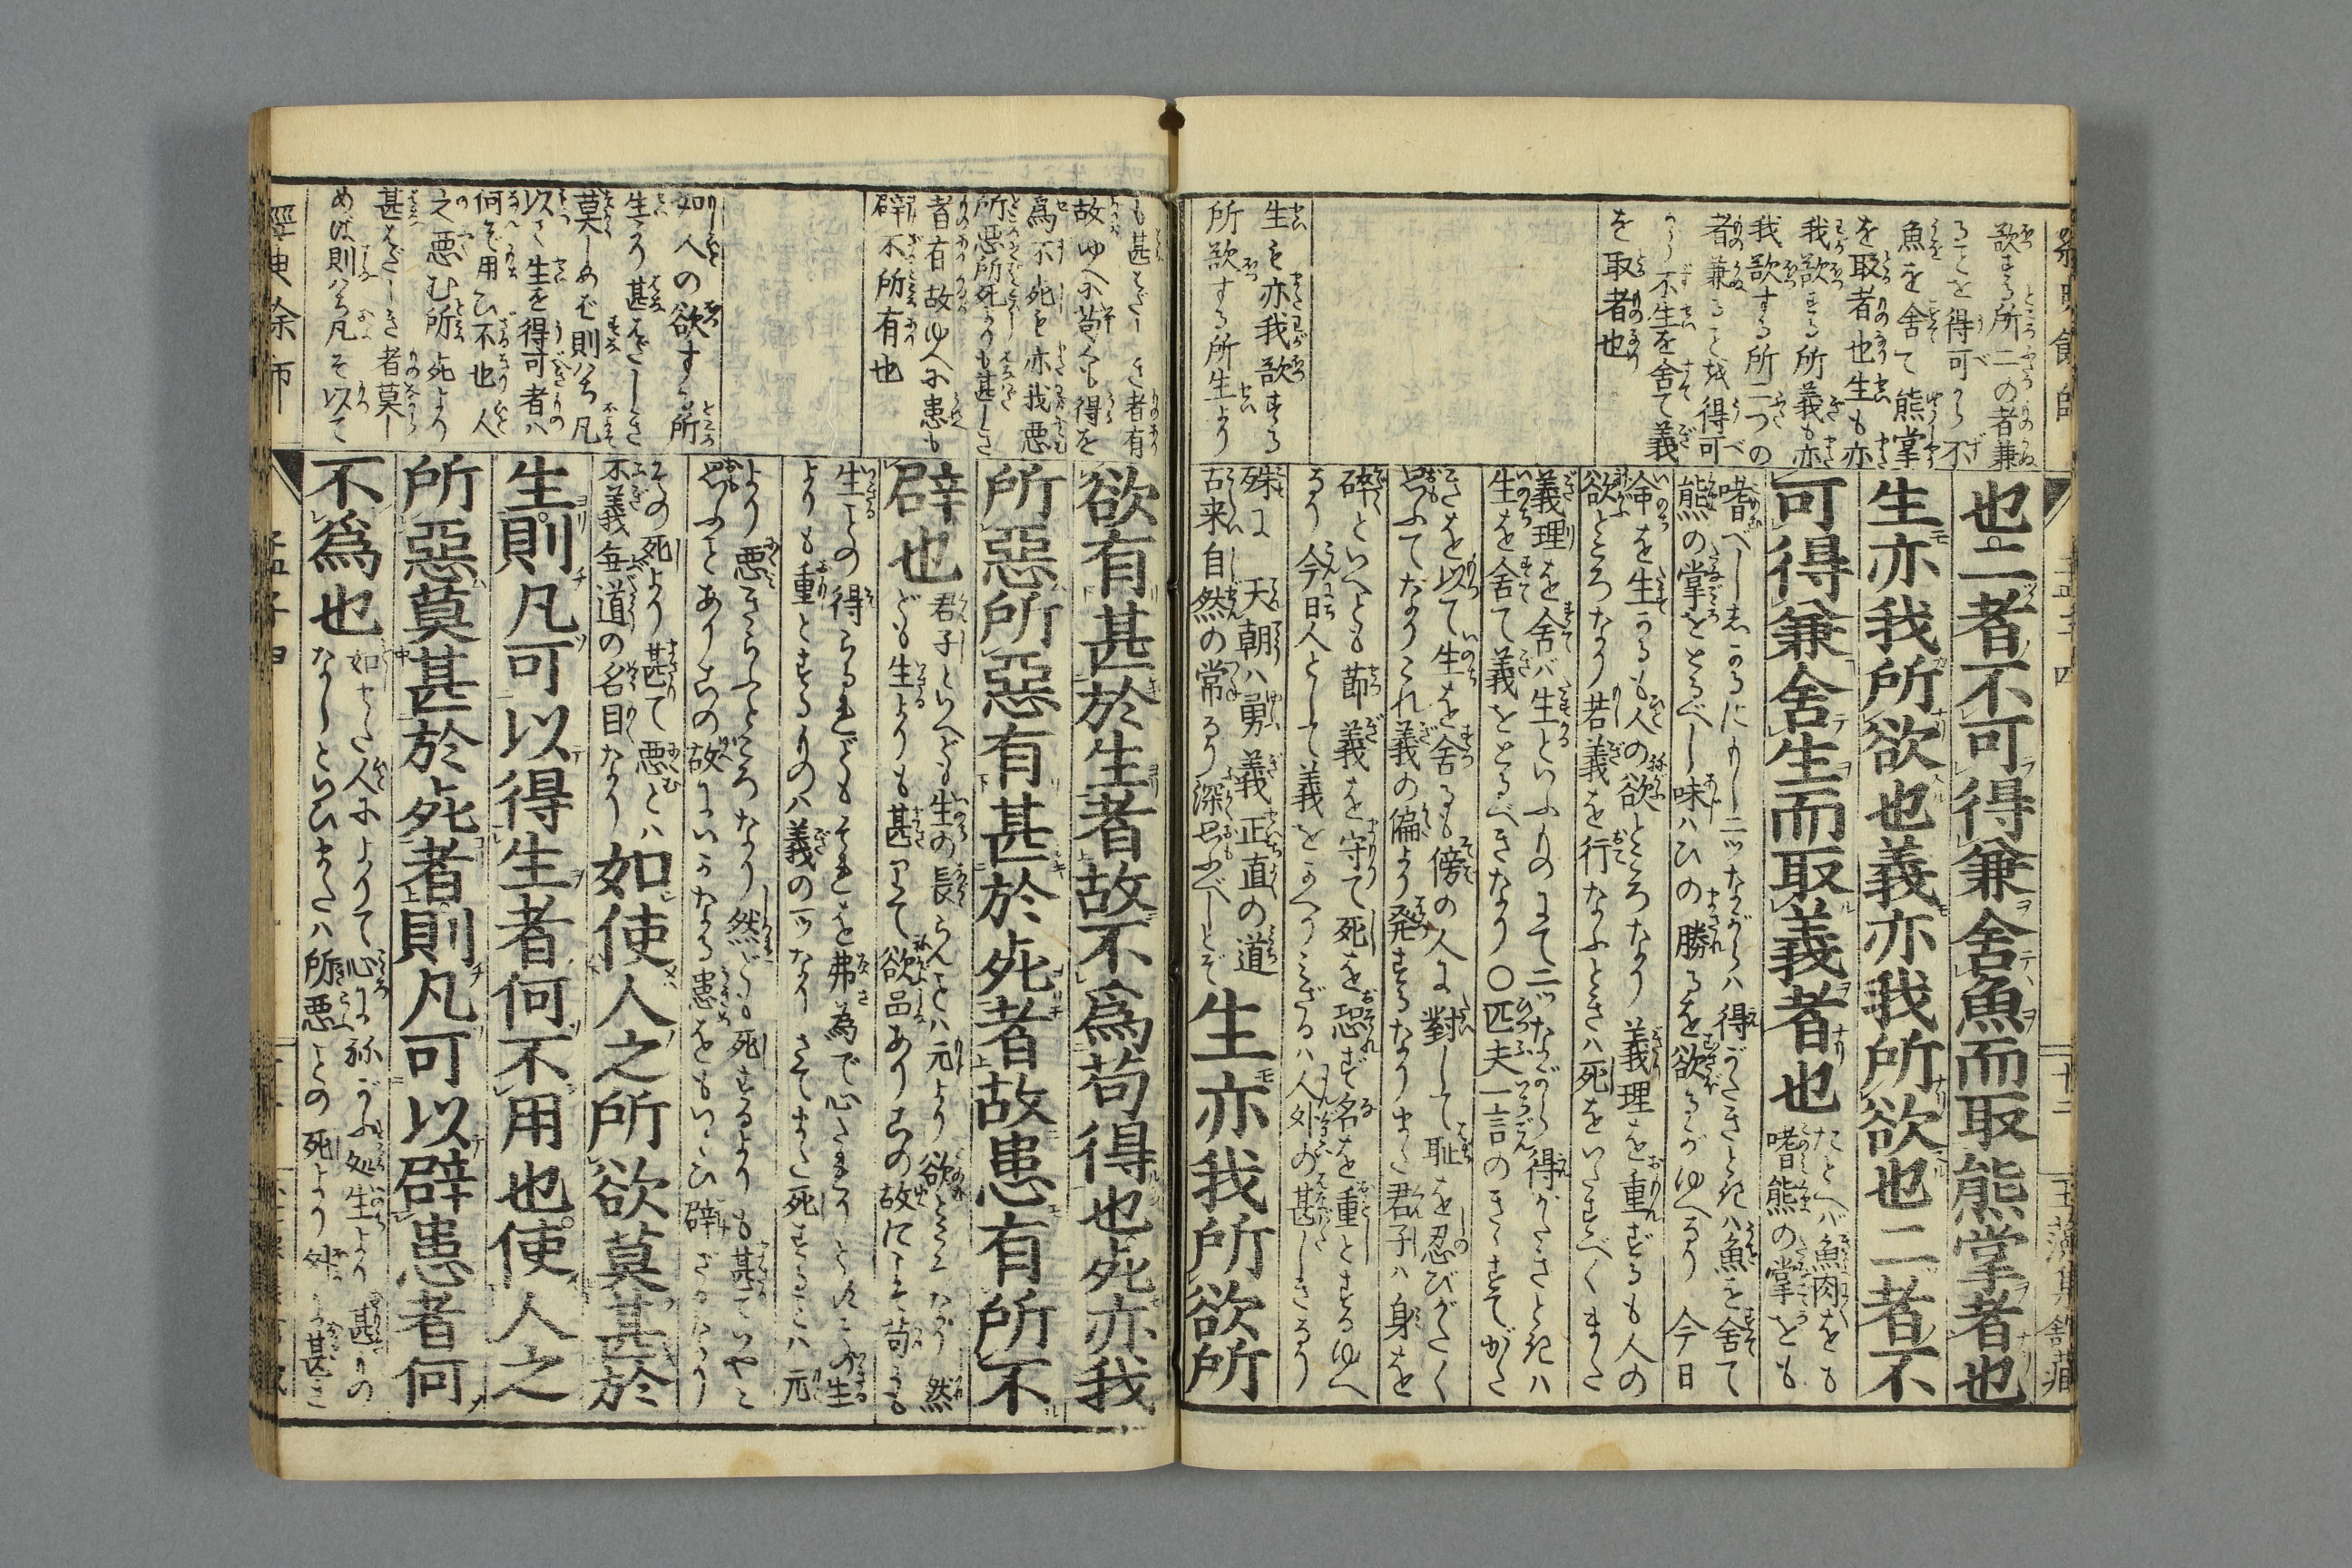 欲する所二の者兼
ることを得可から不
魚を舍て熊掌
を取者也生も亦
我欲する所義も亦
我欲する所二つの
者兼ること得可
からず不生を舍て義
を取者也
生も亦我欲する
所欲する所生より
也二者不可得兼舍魚而取熊掌者也
生亦我所欲也義亦我所欲也二者不
可得兼舍生而取義者也
たとへば魚肉をも
嗜熊の掌とも
熊の掌をとるべし味ハひの勝るを欲るがゆへなり今日
命を生かるも人の欲ところなり義理を重ずるも人の
欲ところなり若義を行なふときハ死をいたすべくまた
義理を舍バ生といふものにて二ツながら得がたきときハ
生を舍て義をとるべきなり〇匹夫一言のきゝすてがた
きを以て生を舍るも傍の人に對して恥を忍びがたく
思ふてなりこれ義の偏より発するなりまた君子ハ身を
碎といへども節義を守て死を恐ず名を重とするゆへ
なり今日人として義をかへりミざるハ人外の甚しきなり
殊に天朝ハ勇義正直の道
古来自然の常なり深思ふべしとぞ
生亦我所欲所
も甚だしき者有
故ゆへに苟くも得を
爲不死も亦我悪
所悪所死よりも甚しき
者有故ゆへに患も
辟不所有也
如人の欲する所
生より甚だしき
莫しめば則ハち凡
以て生を得可者ハ
何ぞ用ひ不也人
之悪む所死より
甚だしき者莫し
めば則ハち凡そ以て
欲有甚於生者故不爲苟得也死亦我
所惡所惡有甚於死者故患有所不
辟也
君子といへども生の長らんとハ元より欲ところなり然
ども生よりも甚して欲品あり其の故にこそ苟にも
よりも重とするものハ義の一ツなりさてまた死することハ元
より悪きらふところなり然ども死するよりも甚ていやと
思ふことあり其の故にいかなる患をもいとひ辟ざるなり
その死より甚て悪とハ
不義無道の名目なり
如使人之所欲莫甚於
生則凡可以得生者何不用也使人之
所惡莫甚於死者則凡可以辟患者何
不爲也
なしといひまたハ所悪ことの死より外に甚き
經典余師
孟子四